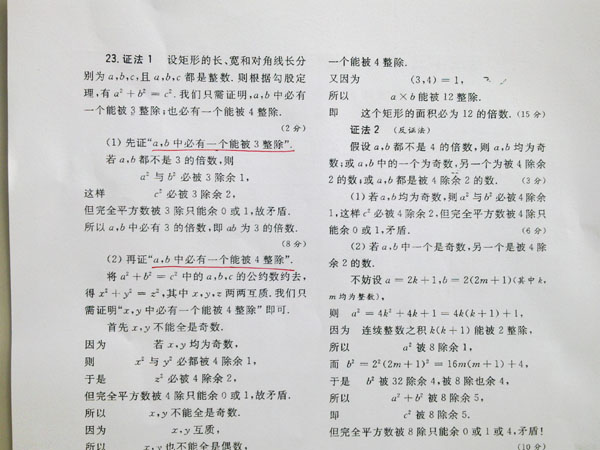 23.证法 1 设矩形的长、宽和对角线长分
别为a,b,c,且a,b,c都是整数.则根据勾股定
理,有a²+b²=c².我们只需证明,a,b中必有
一个能被3整除;也必有一个能被4整除.
(2分)
(1)先证“a,b中必有一个能被3整除”.
若a,b都不是3的倍数,则
a²与b²必被3除余1,
这样 c²必被3除余2,
但完全平方数被3除只能余0或1,故矛盾.
所以a,b中必有3的倍数,即ab为3的倍数.
(8分)
(2)再证“a,b中必有一个能被4整除”.
将a²+b²=c²中的a,b,c的公约数约去,
得x²+y²=z²,其中x,y,z两两互质.我们只
需证明“x,y中必有一个能被4整除”即可.
首先x,y不能全是奇数.
因为 若x,y均为奇数,
则 x²与y²必都被4除余1,
于是 z²必被4除余2,
但完全平方数被4除只能余0或1,故矛盾.
所以 x,y不能全是奇数.
因为 x,y互质,
所以 x,y也不能全是偶数,
一个能被4整除.
又因为 (3,4)=1,
所以 a×b能被12整除.
即 这个矩形的面积必为12的倍数.(15分)
证法2 (反证法)
假设a,b都不是4的倍数,则a,b均为奇
数;或a,b中的一个为奇数,另一个为被4除余
2的数;或a,b都是被4除余2的数. (3分)
(1)若a,b均为奇数,则a²与b²必被4除余
1,这样c²必被4除余2,但完全平方数被4除只
能余0或1,矛盾. (6分)
(2)若a,b中一个是奇数,另一个是被4除
余2的数.
不妨设a=2k+1,b=2(2m+1)(其中k,
m均为整数),
则 a²=4k²+4k+1=4k(k+1)+1,
因为 连续整数之积k(k+1)能被2整除,
所以 a²被8除余1,
而 b²=2²(2m+1)²=16m(m+1)+4,
于是 b²被32除余4,被8除也余4,
所以 a²+b²被8除余5,
即 c²被8除余5.
但完全平方数被8除只能余0或1或4,矛盾!
(10分)